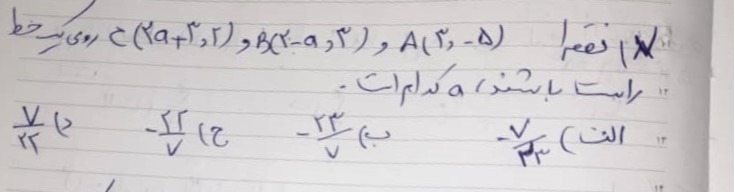 ۷) نقاط A(۳,-۵) و B(۲-a,۳) و C(۲a+۳,۲) روی یک خط
راست باشند، a کدام است.
الف) -۷/۲۳ ب) -۲۳/۷ ج) -۲۲/۷ د) ۷/۲۲